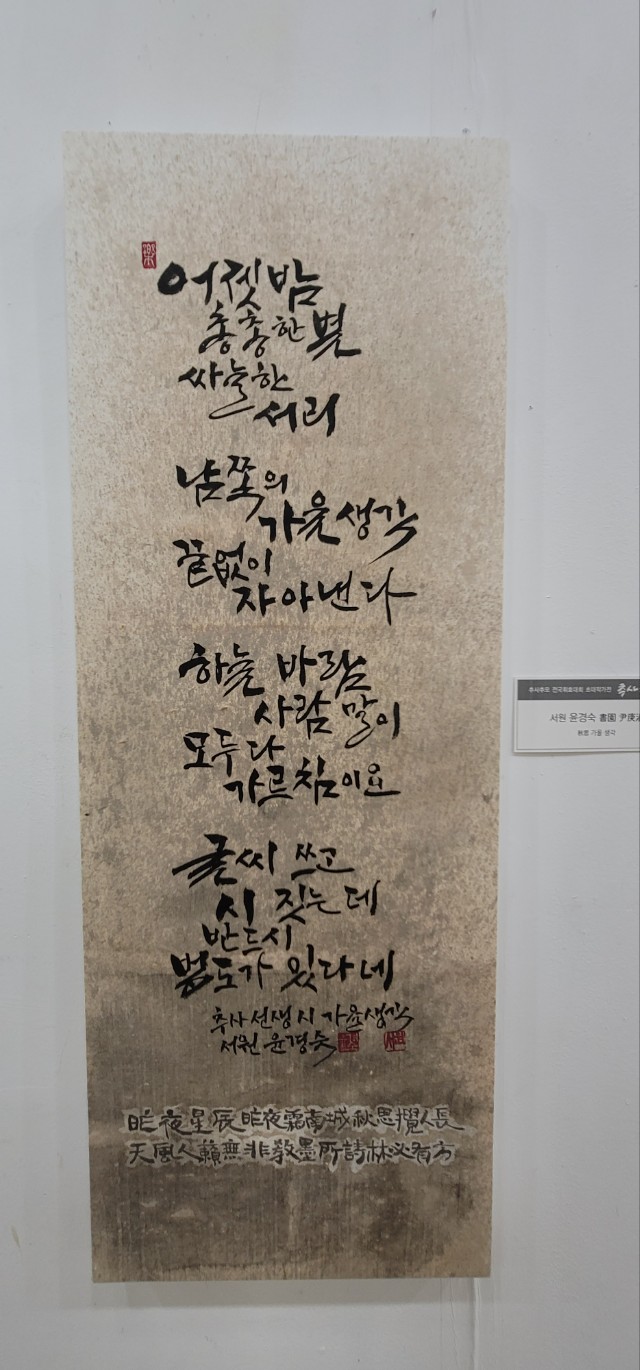 어젯밤
총총한 별
싸늘한
서리
남쪽의
가을 생각
끝없이
자아낸다
하늘 바람
사람 말이
모두 다
가르침이요
글씨 쓰고
시 짓는데
반드시
법도가 있다네
추사 선생 시 가을 생각
서원 윤경숙
昨夜星辰昨夜霜南城秋思攪人長
天風人籟無非敎墨所詩林必有方
추사추모 전국휘호대회 초대작가전 추사
서원 윤경숙 書園 尹庚
秋思 가을 생각